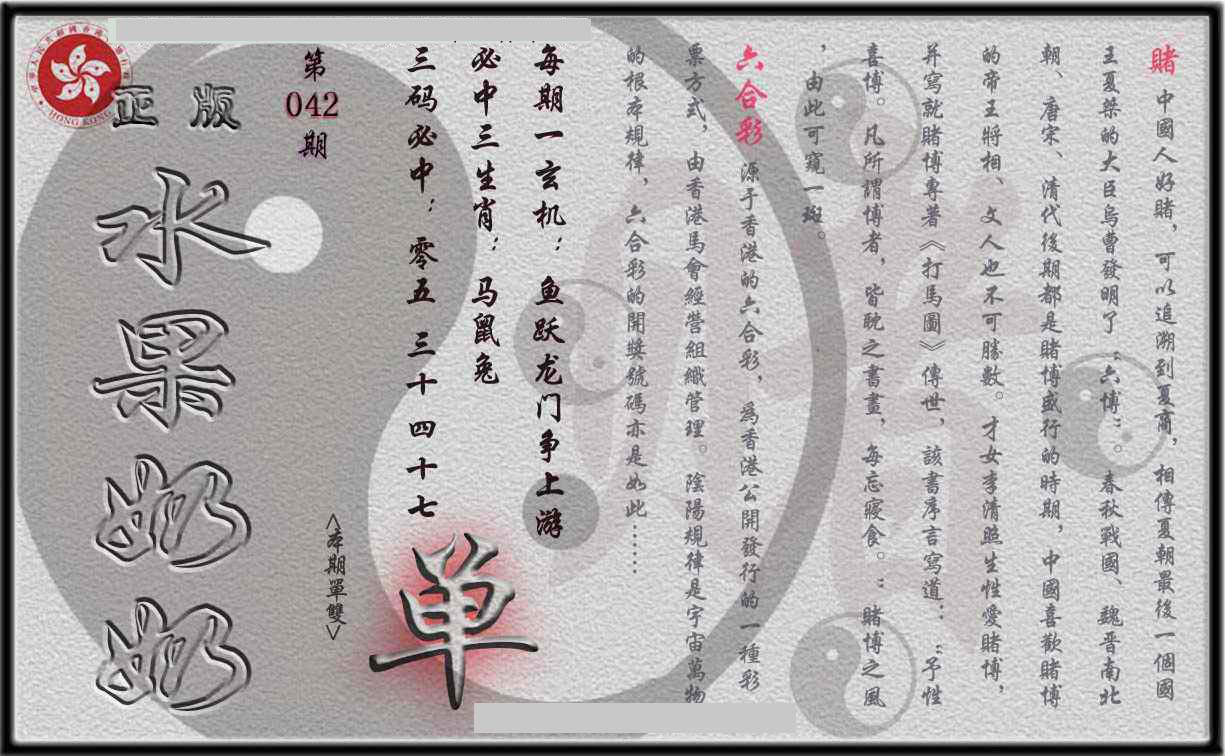 賭 中國人好賭，可以追溯到夏商，相傳夏朝最後一個國
王夏桀的大臣烏曹發明了“六博”。春秋戰國、魏晉南北
朝、唐宋、清代後期都是賭博盛行的時期，中國喜歡賭博
的帝王將相、文人也不可勝數。才女李清照生性愛賭博，
并寫就賭博專著《打馬圖》傳世，該書序言寫道：“予性
喜博。凡所謂博者，皆耽之書畫，每忘寢食。”賭博之風
，由此可窺一斑。
六合彩 源于香港的六合彩，為香港公開發行的一種彩
票方式，由香港馬會經營組織管理。陰陽規律是宇宙萬物
的根本規律，六合彩的開獎號碼亦是如此……
每期一玄机：鱼跃龙门争上游
必中三生肖：马鼠兔
三码必中：零五 三十 四十七
单
<本期單雙>
第
042
期
正版
水果奶奶
HONG KONG